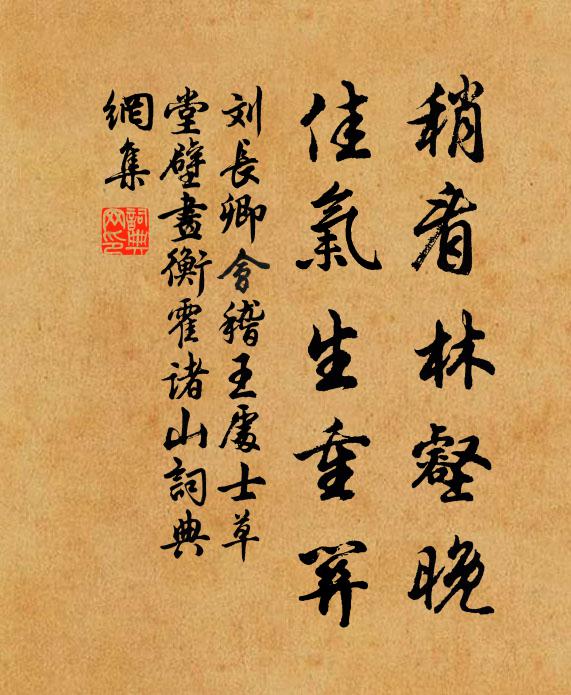 稍看林壑晚
佳氣生重關
刘長卿會稽王處士草
堂壁畫衡霍诸山詞典
網集
詞典
网印